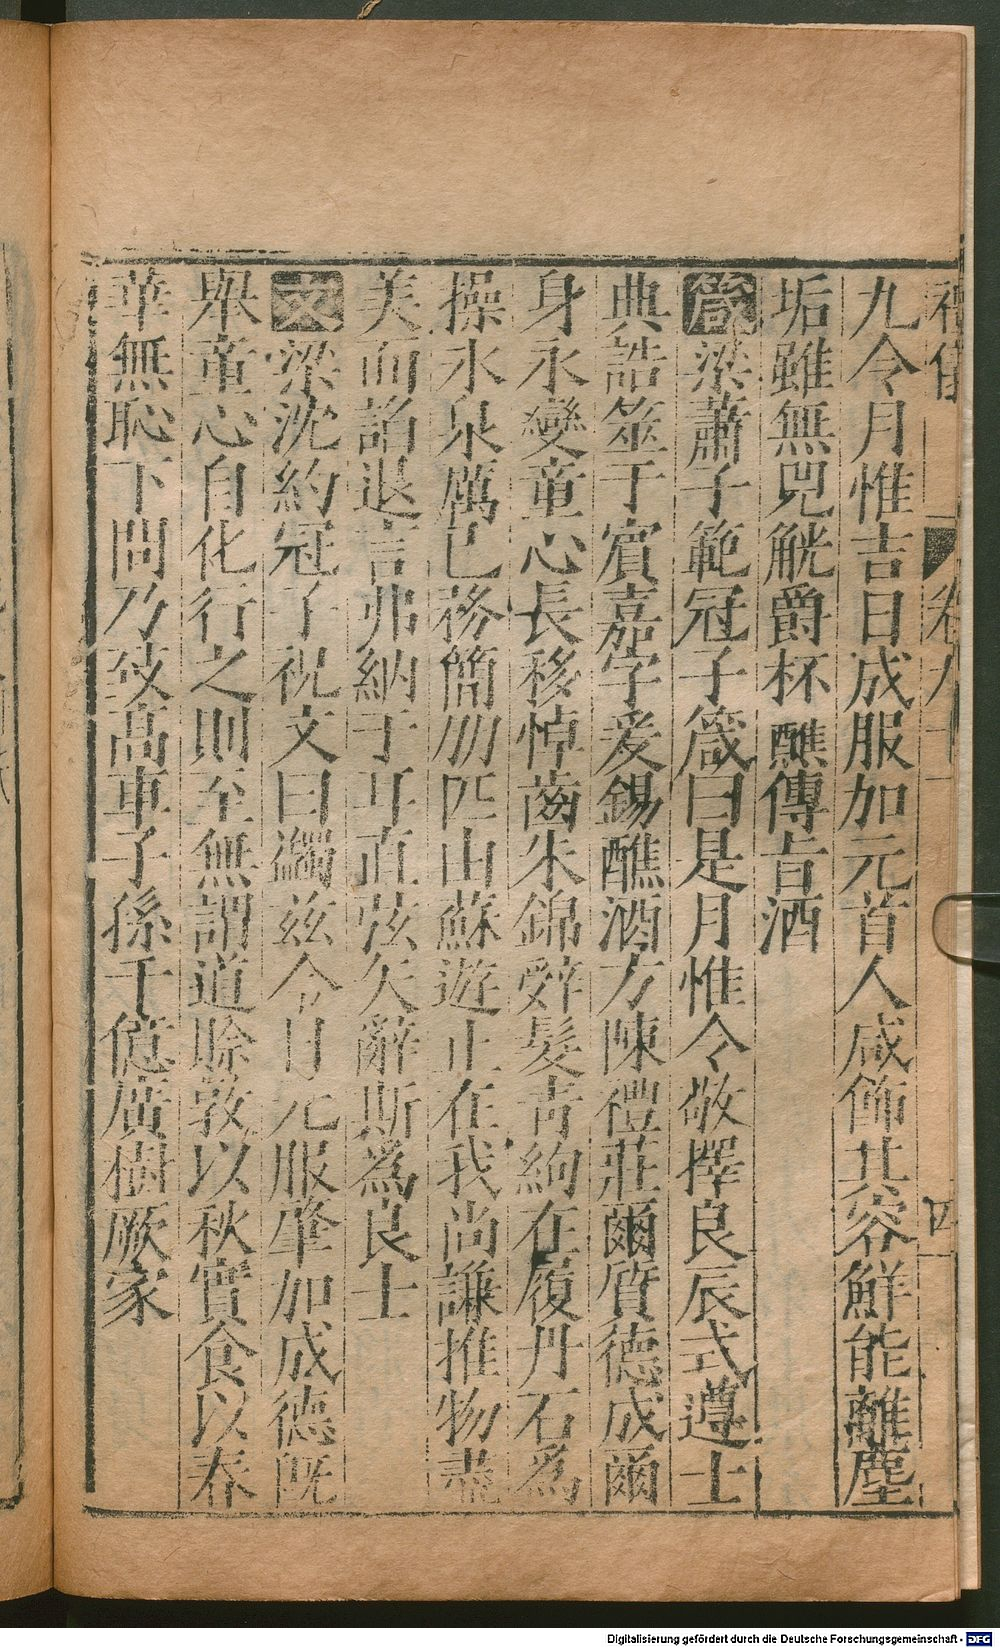 禮儀 卷九 四
九令月惟吉日成服加元首人咸飾其容鮮能離塵
垢雖無兕觥爵杯醮傳旨酒
箴梁蕭子範冠子箴曰是月惟令敬擇良辰式遵士
典誥筮于賓嘉字爰錫醮酒方陳禮莊爾質德成爾
身永變童心長移悼齒朱錦辤髮青絢在履丹石爲
操水泉厲已務簡朋匹由蘇遊止在我尚謙推物盡
美面諂退言弗納于耳直弦矢辭斯爲良士
文梁沈約冠子祝文曰蠲兹令月元服肇加成德既
舉童心自化行之則至無謂道賒敦以秋實食以春
華無恥下問乃致高車子孫千億廣樹厥家
Digitalisierung gefördert durch die Deutsche Forschungsgemeinschaft - DFG